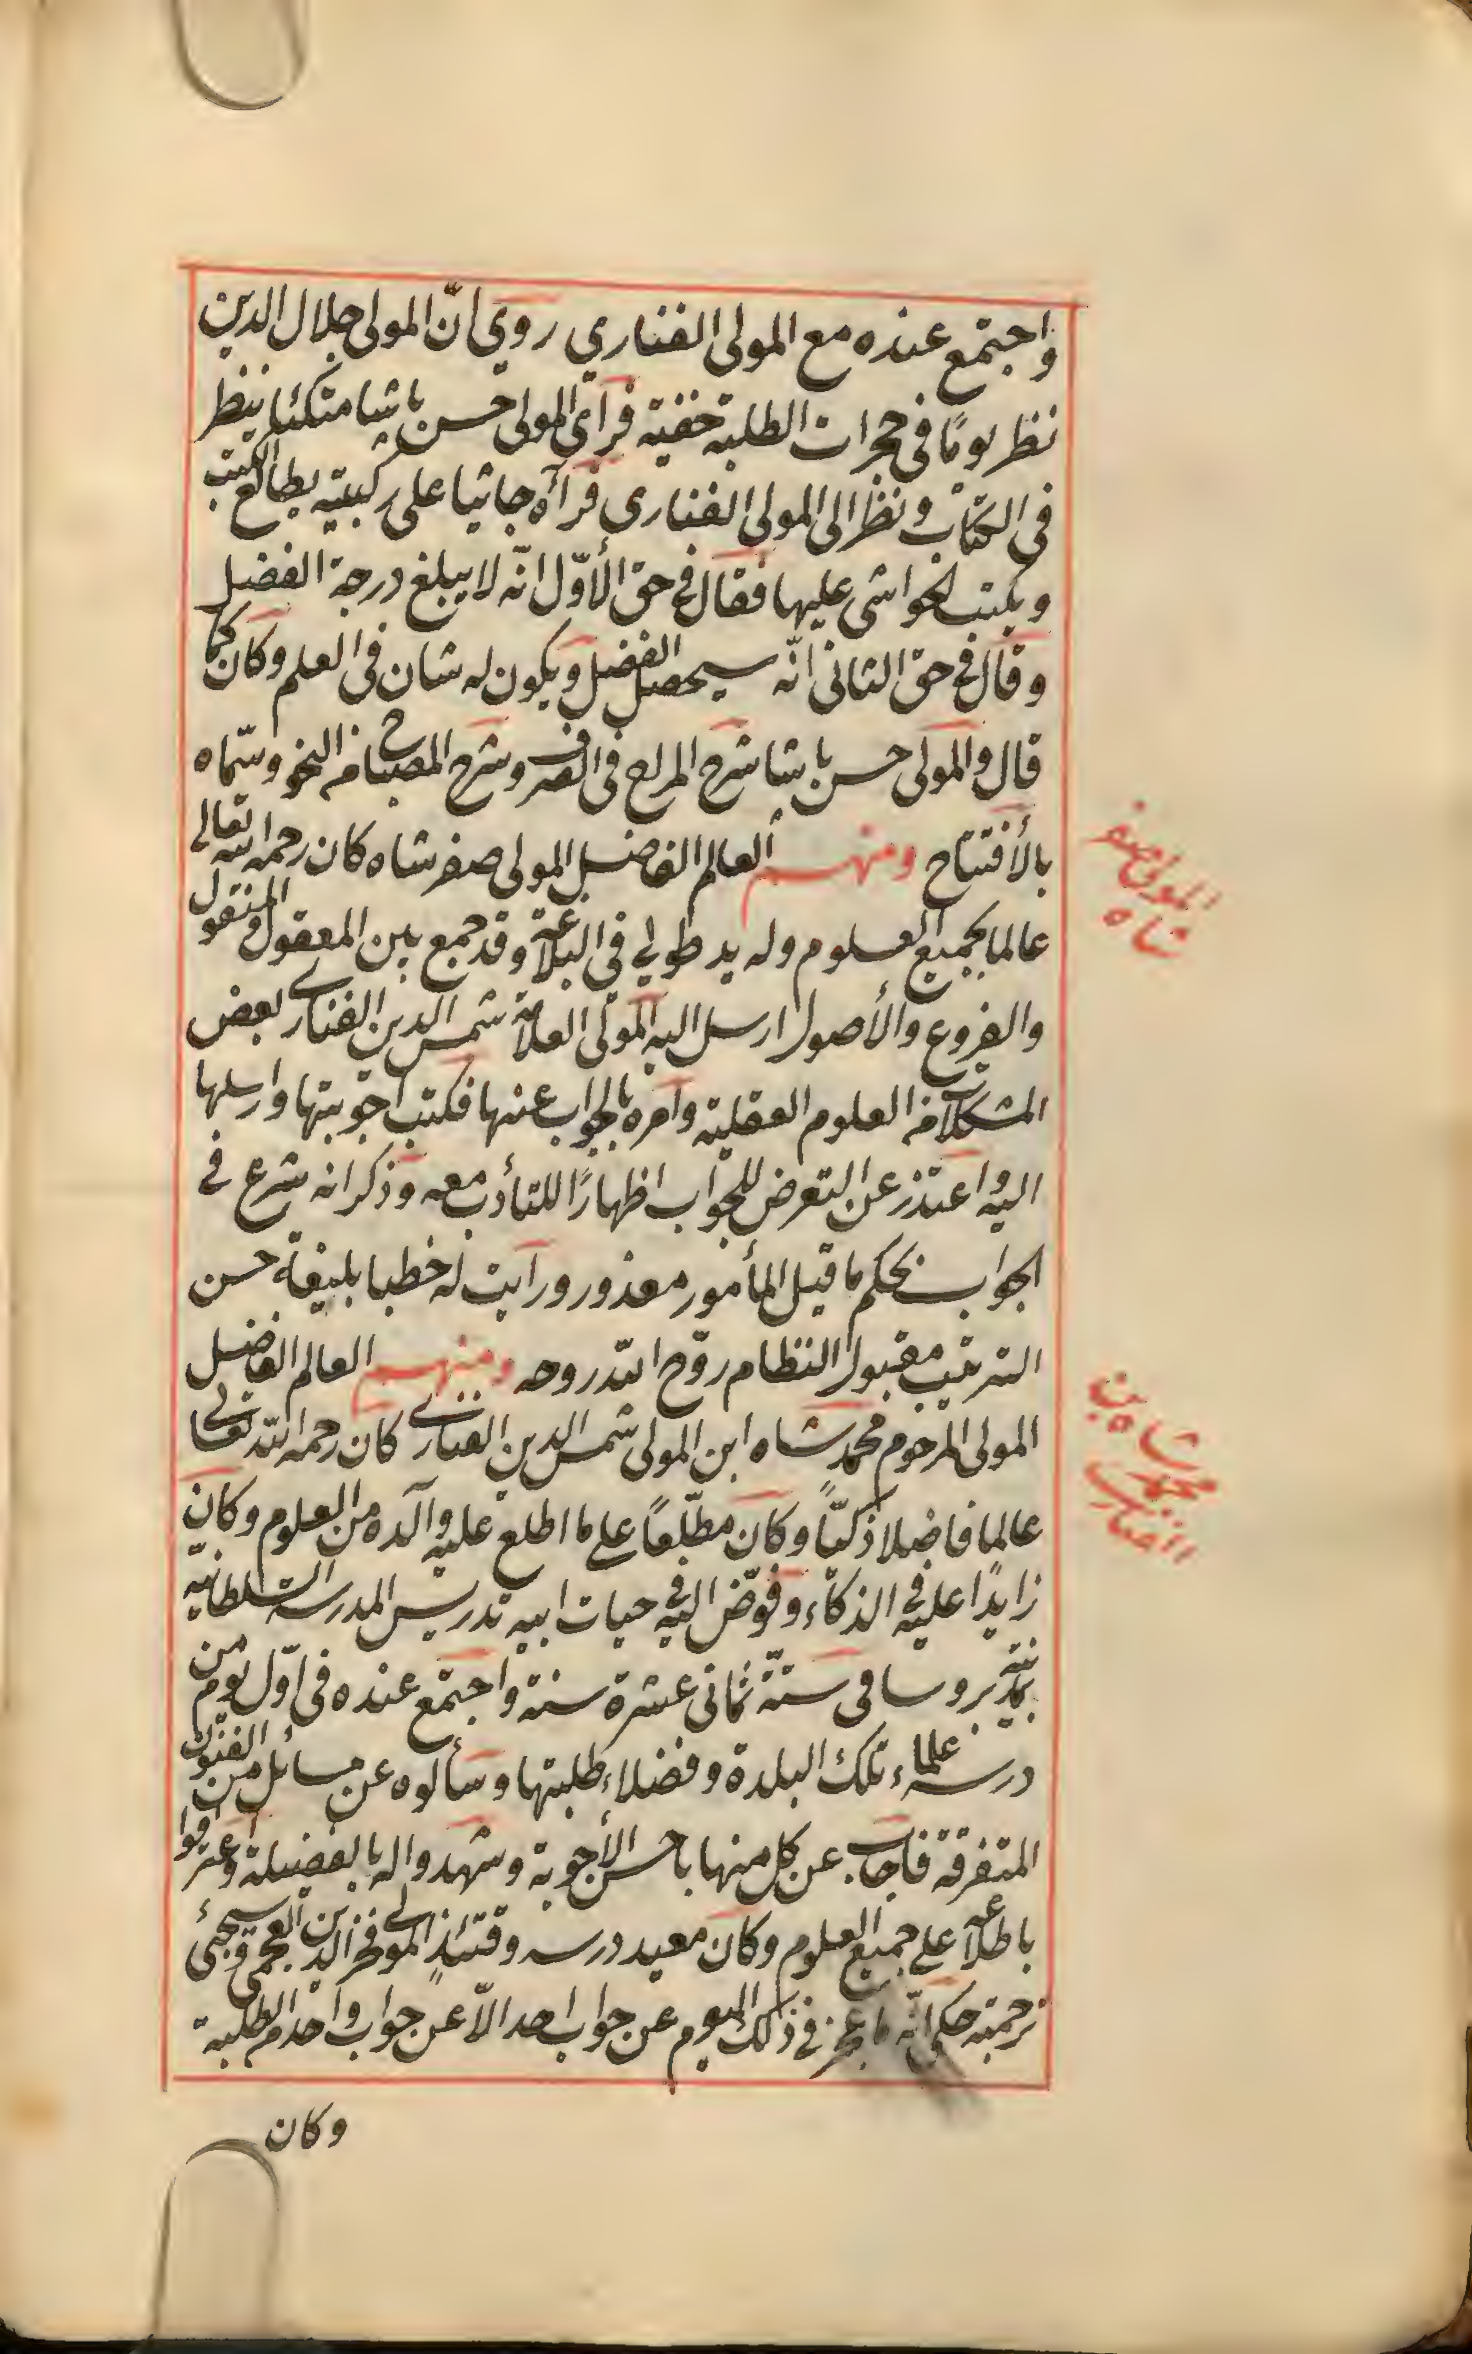 واجتمع عنده مع المولى الفناري روي انّ المولى جلال الدين
نظر يومًا في حجرات الطلبة خفية فرأى المولى حسن باشا متكئا ينظر
في الكتاب ونظر الى المولى الفناري فرآه جاثيا على ركبتيه يطالع الكتب
ويكتب الحواشى عليها فقال في حق الأوّل انّه لا يبلغ درجة الفضل
وقال في حق الثانى انّه سيحصل الفضل ويكون له شان في العلم وكان كما
قال والمولى حسن باشا شرح المراح في الصرف وشرح المصباح في النحو وسمّاه
بالأفتتاح ومنهم العالم الفاضل المولى صفر شاه كان رحمه الله تعالى
عالما بجميع العلوم وله يد طولى في البلاغة وقد جمع بين المعقول والمنقول
والفروع والأصول ارسل اليه المولى العلامة شمس الدين الفنارى بعض
المشكلات من العلوم العقلية وامره بالجواب عنها فكتب اجوبتها وارسلها
اليه واعتذر عن التعرض للجواب اظهارًا للتأدب معه وذكر انه شرع في
الجواب بحكم ما قيل المأمور معذور ورايت له خطبا بليغة حسن
الترتيب مقبول النظام روّح الله روحه ومنهم العالم الفاضل
المولى المرحوم محمد شاه ابن المولى شمس الدين الفنارى كان رحمه الله تعالى
عالما فاضلا ذكيّاً وكان مطّلعاً على ما اطلع عليه والده من العلوم وكان
زايدًا عليه في الذكاء وفوّض اليه في حيات ابيه تدريس المدرسة السلطانية
بمدينة بروسا في سنّة ثمانى عشرة سنة واجتمع عنده في اوّل يوم من
درسه علماء تلك البلدة وفضلاء طلبتها وسألوه عن مسائل من الفنون
المتفرقة فاجاب عن كل منها باحسن الأجوبة وشهدوا له بالفضيلة واعترفوا
باطلاعه على جميع العلوم وكان معيد درسه وقتئذٍ المولى فخر الدين العجمى وسيجئ
ترجمته حكى انّه ما عجز في ذلك اليوم عن جواب احد الاّ عن جواب واحد من الطلبة
وكان
المولى صفر
شاه
محمد شاه بن
الفنارى